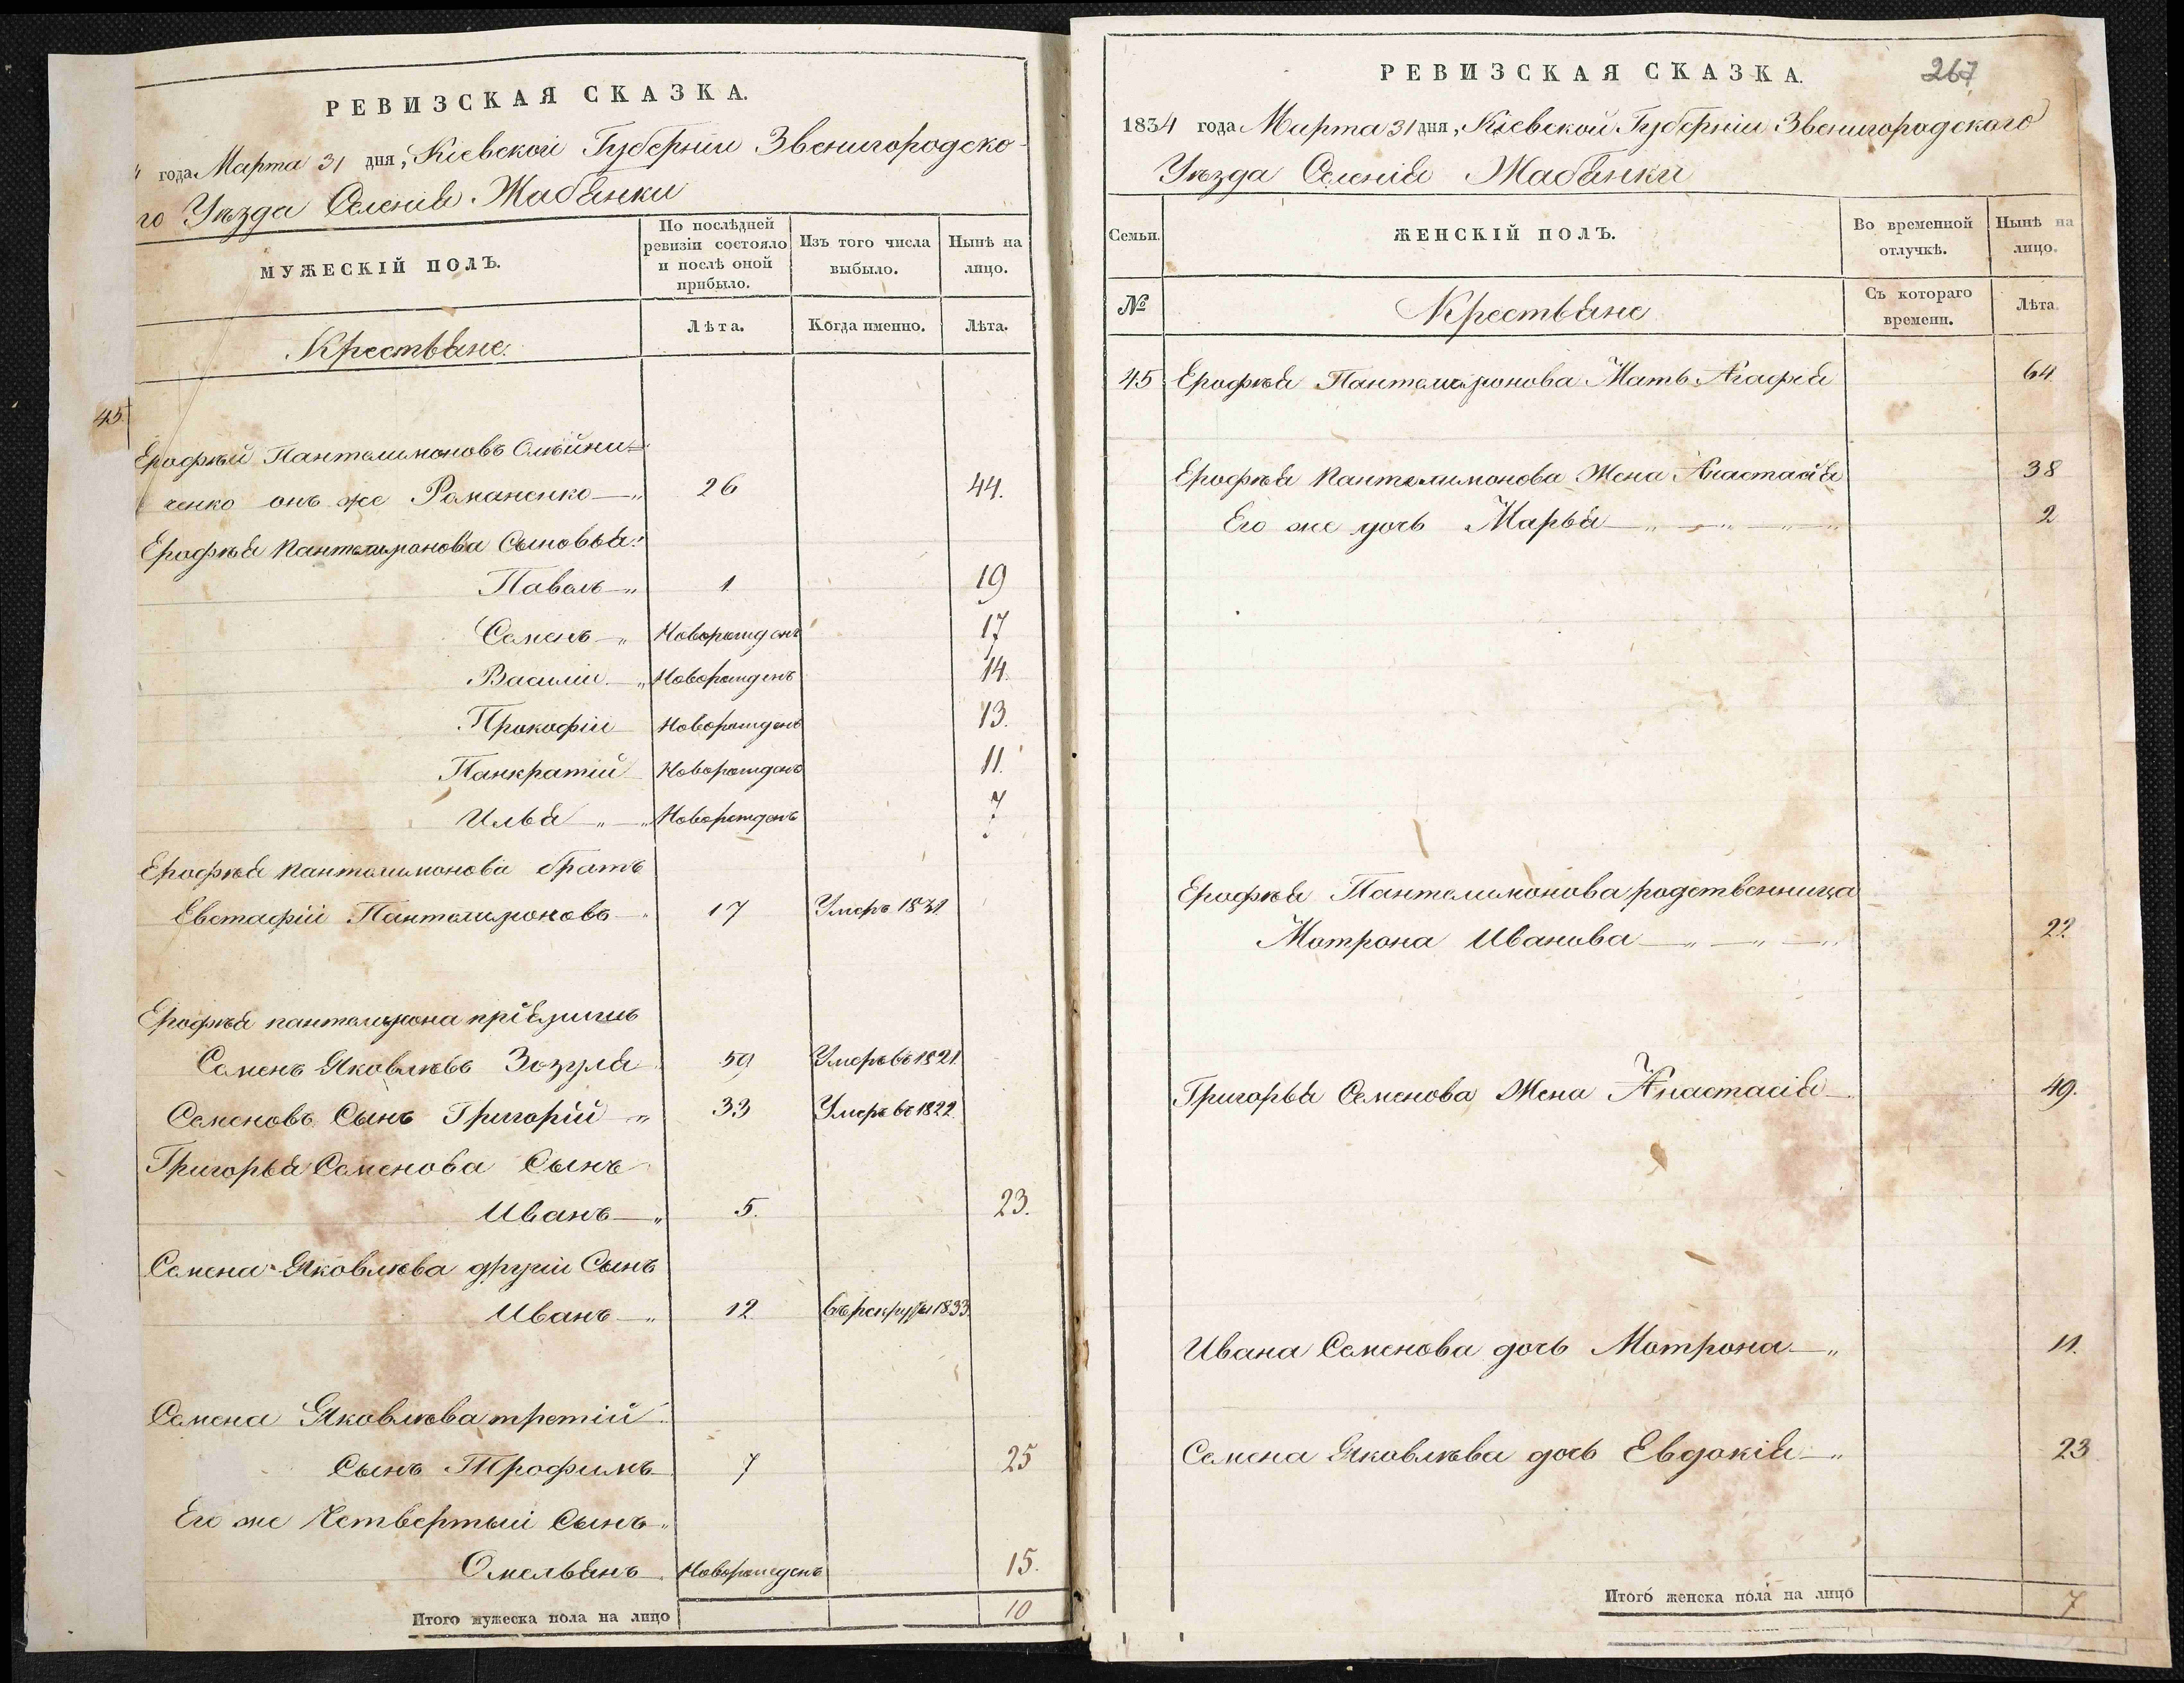 РЕВИЗСКАЯ СКАЗКА.
года Марта 31 дня, Кіевской Губерніи Звенигородско-
го Уѣзда Селенія Жабянки
МУЖЕСКІЙ ПОЛЪ.
По послѣдней ревизіи состояло и послѣ оной прибыло.
Изъ того числа выбыло.
Нынѣ на лицо.
Крестьяне.
Лѣта.
Когда именно.
Лѣта.
45.
Ерофѣй Пантелимоновъ Олѣйни-
ченко онъ же Романенко 26 44.
Ерофѣя Пантелимонова Сыновья:
Павелъ 1 19
Семенъ Новорожденъ 17
Василій Новорожденъ 14.
Прокофій Новорожденъ 13.
Панкратій Новорожденъ 11.
Илья Новорожденъ 7
Ерофѣя Пантелимонова братъ
Евстафій Пантелимоновъ 17 Умеръ
Ерофѣя пантелимона
Семенъ Яковлѣвъ Зозуля 59 Умеръ въ 1821.
Семеновъ Сынъ Григорій 33 Умеръ въ 1822.
Григорья Семенова Сынъ
Иванъ 5. 23.
Семена Яковлѣва другій Сынъ
Иванъ 12 въ рекруты 1833
Семена Яковлѣва третій
Сынъ Трофимъ 7 25
Его же Четвертый Сынъ
Омельянъ Новорожденъ 15.
Итого мужеска пола на лицо 10
РЕВИЗСКАЯ СКАЗКА.
267
1834 года Марта 31 дня, Кіевской Губерніи Звенигородскаго
Уѣзда Селенія Жабянки
Семьи.
ЖЕНСКІЙ ПОЛЪ.
Во временной отлучкѣ.
Нынѣ на лицо.
№
Крестьяне
Съ котораго времени.
Лѣта.
45 Ерофѣя Пантелимонова Мать Агафія 64
Ерофѣя Пантелимонова Жена Анастасія 38
Его же дочь Марья 2
Ерофѣя Пантелимонова родственница
Мотрона Иванова 22.
Григорья Семенова Жена Анастасія 49.
Ивана Семенова дочь Мотрона 11.
Семена Яковлѣва дочь Евдокія 23
Итого женска пола на лицо 7